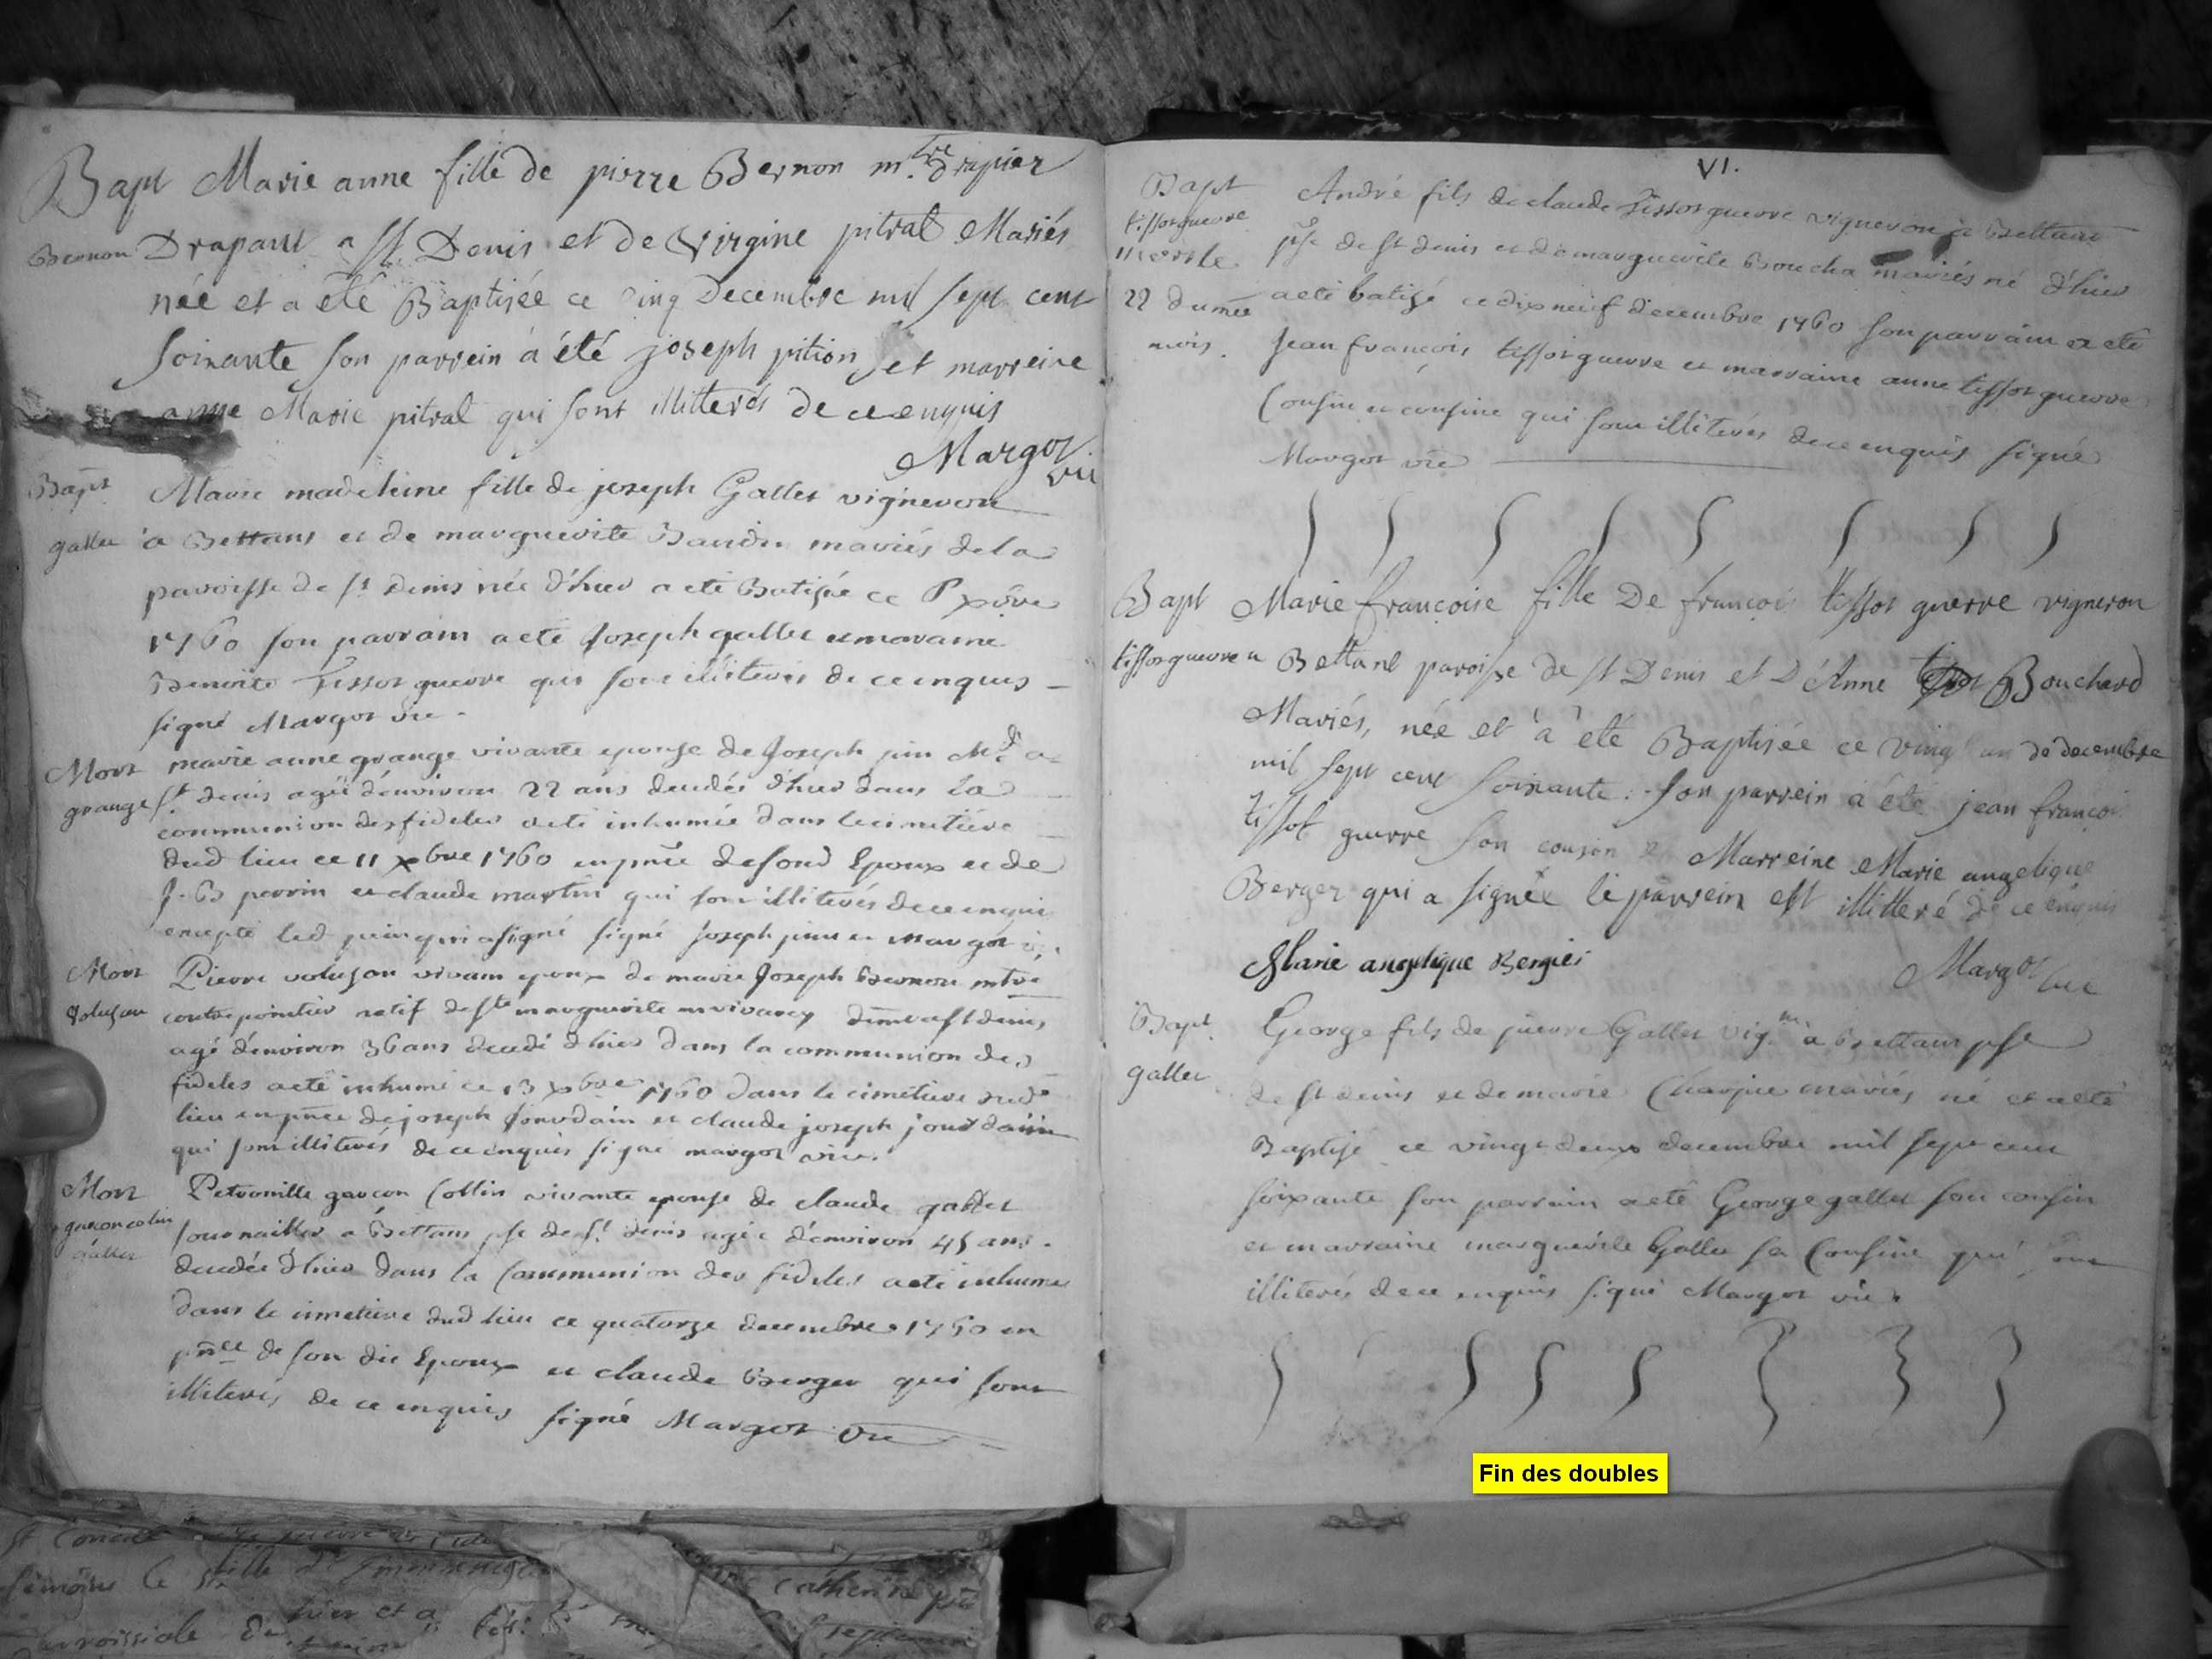 Bapt Marie anne fille de pierre Bernon m.tre Drapier
Bernon Drapant a St. Denis et de Virgine pitral Mariés
née et a été Baptisée ce cinq Decembre mil sept cent
soixante son parrein à été joseph pition et marreine
anne Marie pitral qui sont illitterés de ce enquis
Margot vic
Bapt Marie madeleine fille de joseph Gallet vigneron
gallet a Bettans et de marguerite Baudin mariés de la
paroisse de st denis née d'hier a eté Batisée ce
1760 son parrain a eté Joseph gallet et maraine
Benoite Tissot guerre qui sont illiterés de ce enquis
signé Margot vic.
Mort marie anne grange vivante epouse de Joseph pin Md. a
grange st. denis agée d'environ 22 ans decedée d'hier dans la
communion des fideles a eté inhumée dans le cimetière
dud lieu ce 11 xbre 1760 en pnce de son d Epoux et de
J. B perrin et claude martin qui sont illiterés de ce enquis
excepté led pin qui a signé signé Joseph pin et Margot
Mort Pierre volusan vivant epoux de marie Joseph Bernon mtre
Volusan contrepointier natif de ste marguerite en vivarey a st denis
agé d'environ 36 ans decedé d'hier dans la communion des
fideles a eté inhumé ce 13 xbre 1760 dans le cimetiere dud
lieu en pnce de joseph Jourdain et claude joseph jourdain
qui sont illiterés de ce enquis signé margot vic.
Mort Petronille garcon Collin vivante epouse de claude gallet
garcon colin Journaillier a Bettans psse de st. denis agée d'environ 45 ans.
gallet decedée d'hier dans la Communion des fideles a eté inhumée
dans le cimetiere dud lieu ce quatorze decembre 1760 en
pnce de son dit Epoux et claude Berger qui sont
illiterés de ce enquis signé Margot vic
VI.
Bapt André fils de claude Tissot guerre vigneron à Bettans
tissot guerre psse de st denis et de marguerite Boucha mariés né d'hier
Morte a eté batisé ce dix neuf decembre 1760 son parrain a eté
22 du me Jean francois tissot guerre et marraine anne tissot guerre
mois. Cousin et cousine qui sont illiterés de ce enquis signé
Margot vic
Bapt Marie francoise fille De francois tissot guerre vigneron
tissot guerre a Bettant paroisse de st Denis et D'Anne Bouchard
Mariés, née et à été Baptisée ce vingt un de decembre
mil sept cent soixante. son parrein à été jean francois
tissot guerre son couson et Marreine Marie angelique
Berger qui a signée le parrein est illitteré de ce enquis
Marie angelique Bergier
Margot vic
Bapt George fils de pierre Gallet vig.n à Bettans psse
gallet de st denis et de marie Charpie mariés né et a eté
Baptisé ce vingt deux decembre mil sept cent
soixante son parrain a eté George gallet son cousin
et marraine marguerite Gallet sa Cousine qui sont
illiterés de ce enquis signé Margot vic.
Fin des doubles